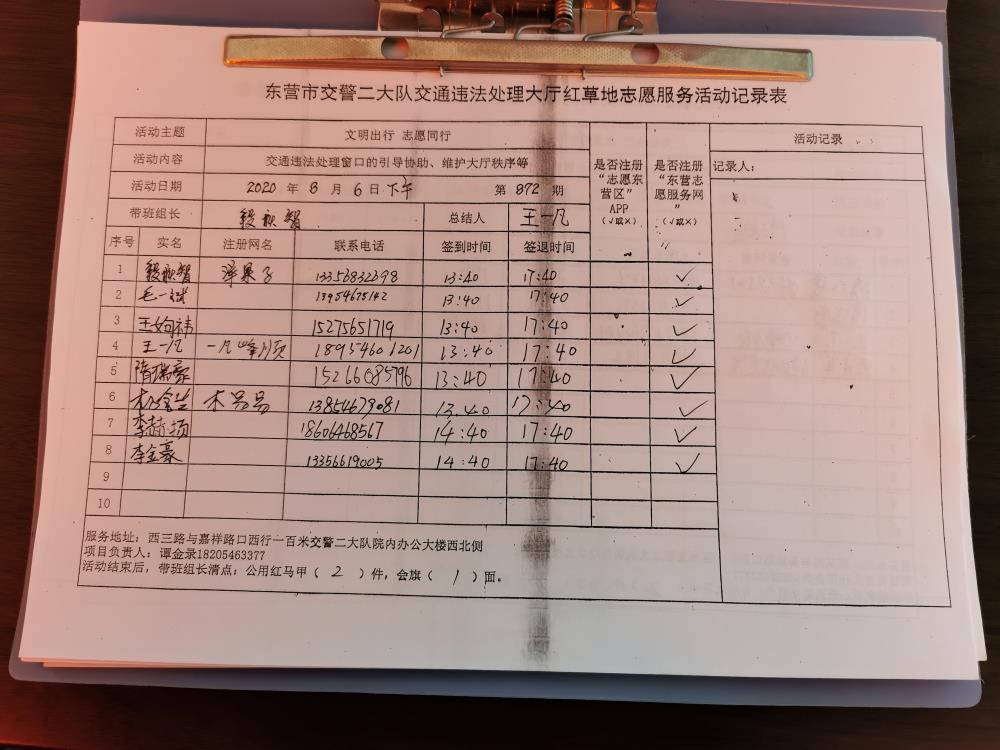 东营市交警二大队交通违法处理大厅红草地志愿服务活动记录表
活动主题 文明出行 志愿同行
活动内容 交通违法处理窗口的引导协助、维护大厅秩序等
活动日期 2020 年 8 月 6 日下午 第 872 期
是否注册“志愿东营区”APP（√或×）
是否注册“东营志愿服务网”（√或×）
活动记录
记录人：
带班组长 总结人 王一凡
序号 实名 注册网名 联系电话 签到时间 签退时间
1 13:40 17:40 ✓
2 毛一 13954675142 13:40 17:40 ✓
3 王姁祎 15275651719 13:40 17:40 ✓
4 王一凡 一凡峰顺 18954601201 13:40 17:40 ✓
5 隋瑞豪 15266685796 13:40 17:40 ✓
6 木易易 13854679081 13:40 17:40 ✓
7 李赫 18606468567 14:40 17:40 ✓
8 李金豪 13356619005 14:40 17:40 ✓
9
10
服务地址：西三路与嘉祥路口西行一百米交警二大队院内办公大楼西北侧
项目负责人：谭金录18205463377
活动结束后，带班组长清点：公用红马甲（ 2 ）件，会旗（ 1 ）面。